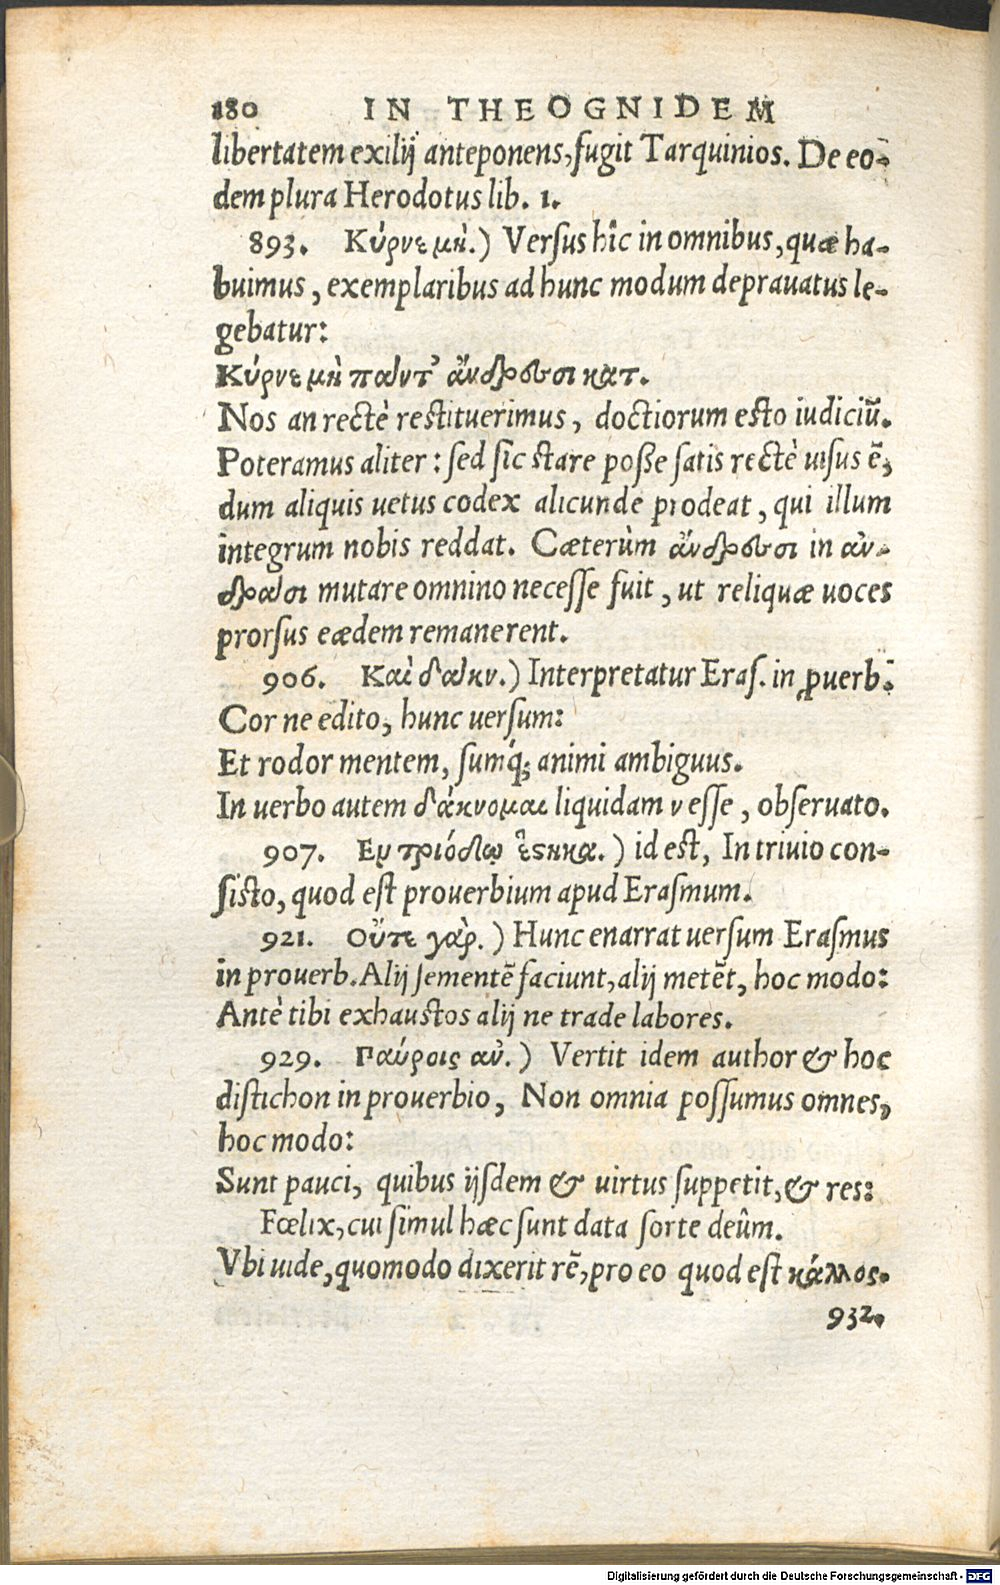 180 IN THEOGNIDEM
libertatem exilij anteponens, fugit Tarquinios. De eo-
dem plura Herodotus lib. 1.
893. Κύρνε μὴ.) Versus hîc in omnibus, quæ ha-
buimus, exemplaribus ad hunc modum deprauatus le-
gebatur:
Κύρνε μὴ πάντ' ἄνδρεσσι κατ.
Nos an rectè restituerimus, doctiorum esto iudiciũ.
Poteramus aliter: sed sic stare posse satis rectè uisus ẽ,
dum aliquis uetus codex alicunde prodeat, qui illum
integrum nobis reddat. Cæterùm ἄνδρεσσι in ἀν-
δράσι mutare omnino necesse fuit, ut reliquæ uoces
prorsus eædem remanerent.
906. Καὶ δάκν.) Interpretatur Eras. in ꝓuerb.
Cor ne edito, hunc uersum:
Et rodor mentem, sumq́; animi ambiguus.
In uerbo autem δάκνομαι liquidam ν esse, obseruato.
907. Εν τριόδῳ ἕστηκα.) id est, In triuio con-
sisto, quod est prouerbium apud Erasmum.
921. Οὔτε γὰρ.) Hunc enarrat uersum Erasmus
in prouerb. Alij sementẽ faciunt, alij metẽt, hoc modo:
Antè tibi exhaustos alij ne trade labores.
929. Παύροις αν̓.) Vertit idem author & hoc
distichon in prouerbio, Non omnia possumus omnes,
hoc modo:
Sunt pauci, quibus ijsdem & uirtus suppetit, & res:
Fœlix, cui simul hæc sunt data sorte deûm.
Vbi uide, quomodo dixerit rẽ, pro eo quod est κάλλος.
932.
Digitalisierung gefördert durch die Deutsche Forschungsgemeinschaft - DFG